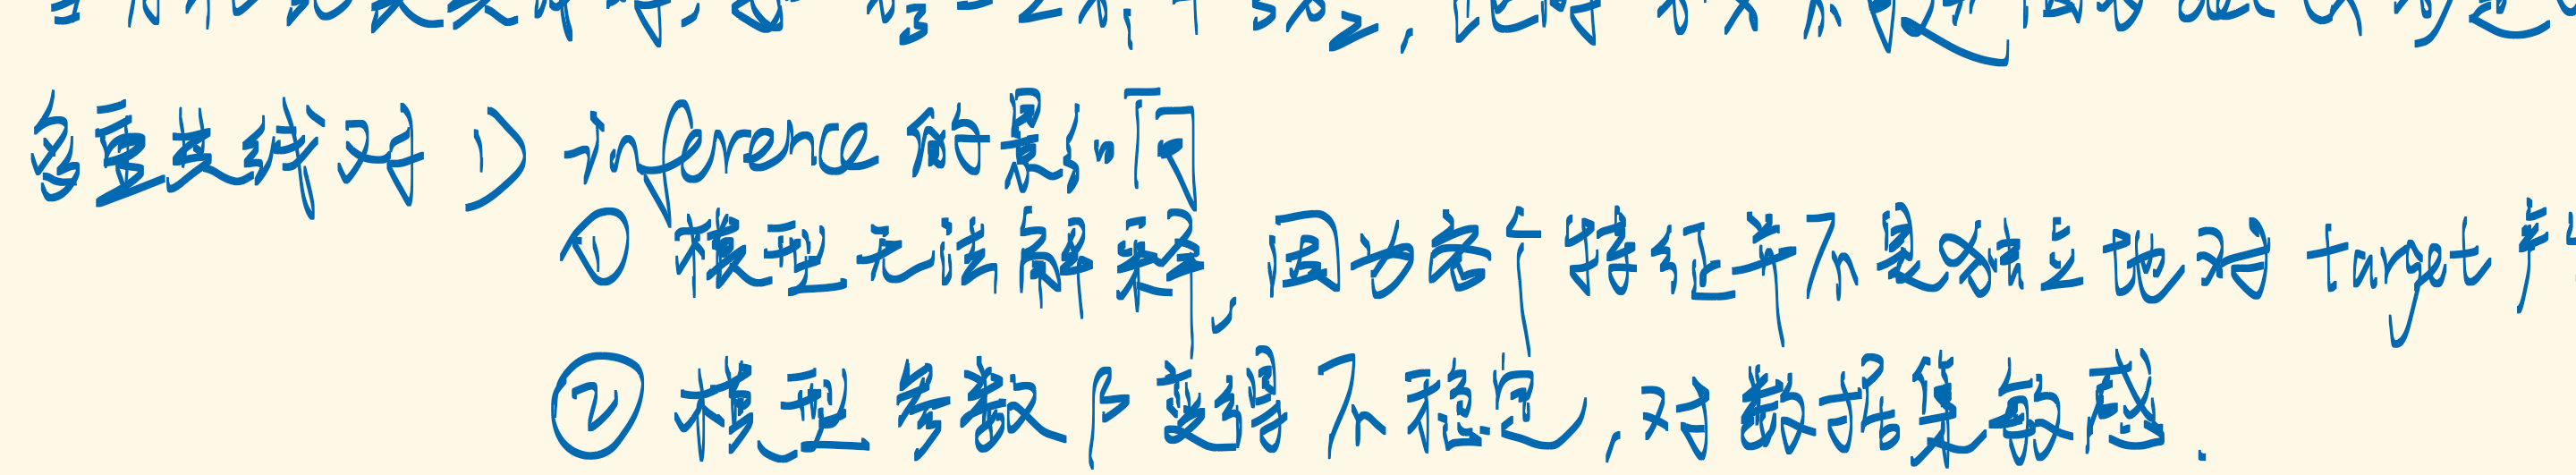 多重共线对 1) inference 的影响
① 模型无法解释, 因为各个特征并不是独立地对 target 产
② 模型参数 β 变得不稳定, 对数据集敏感.